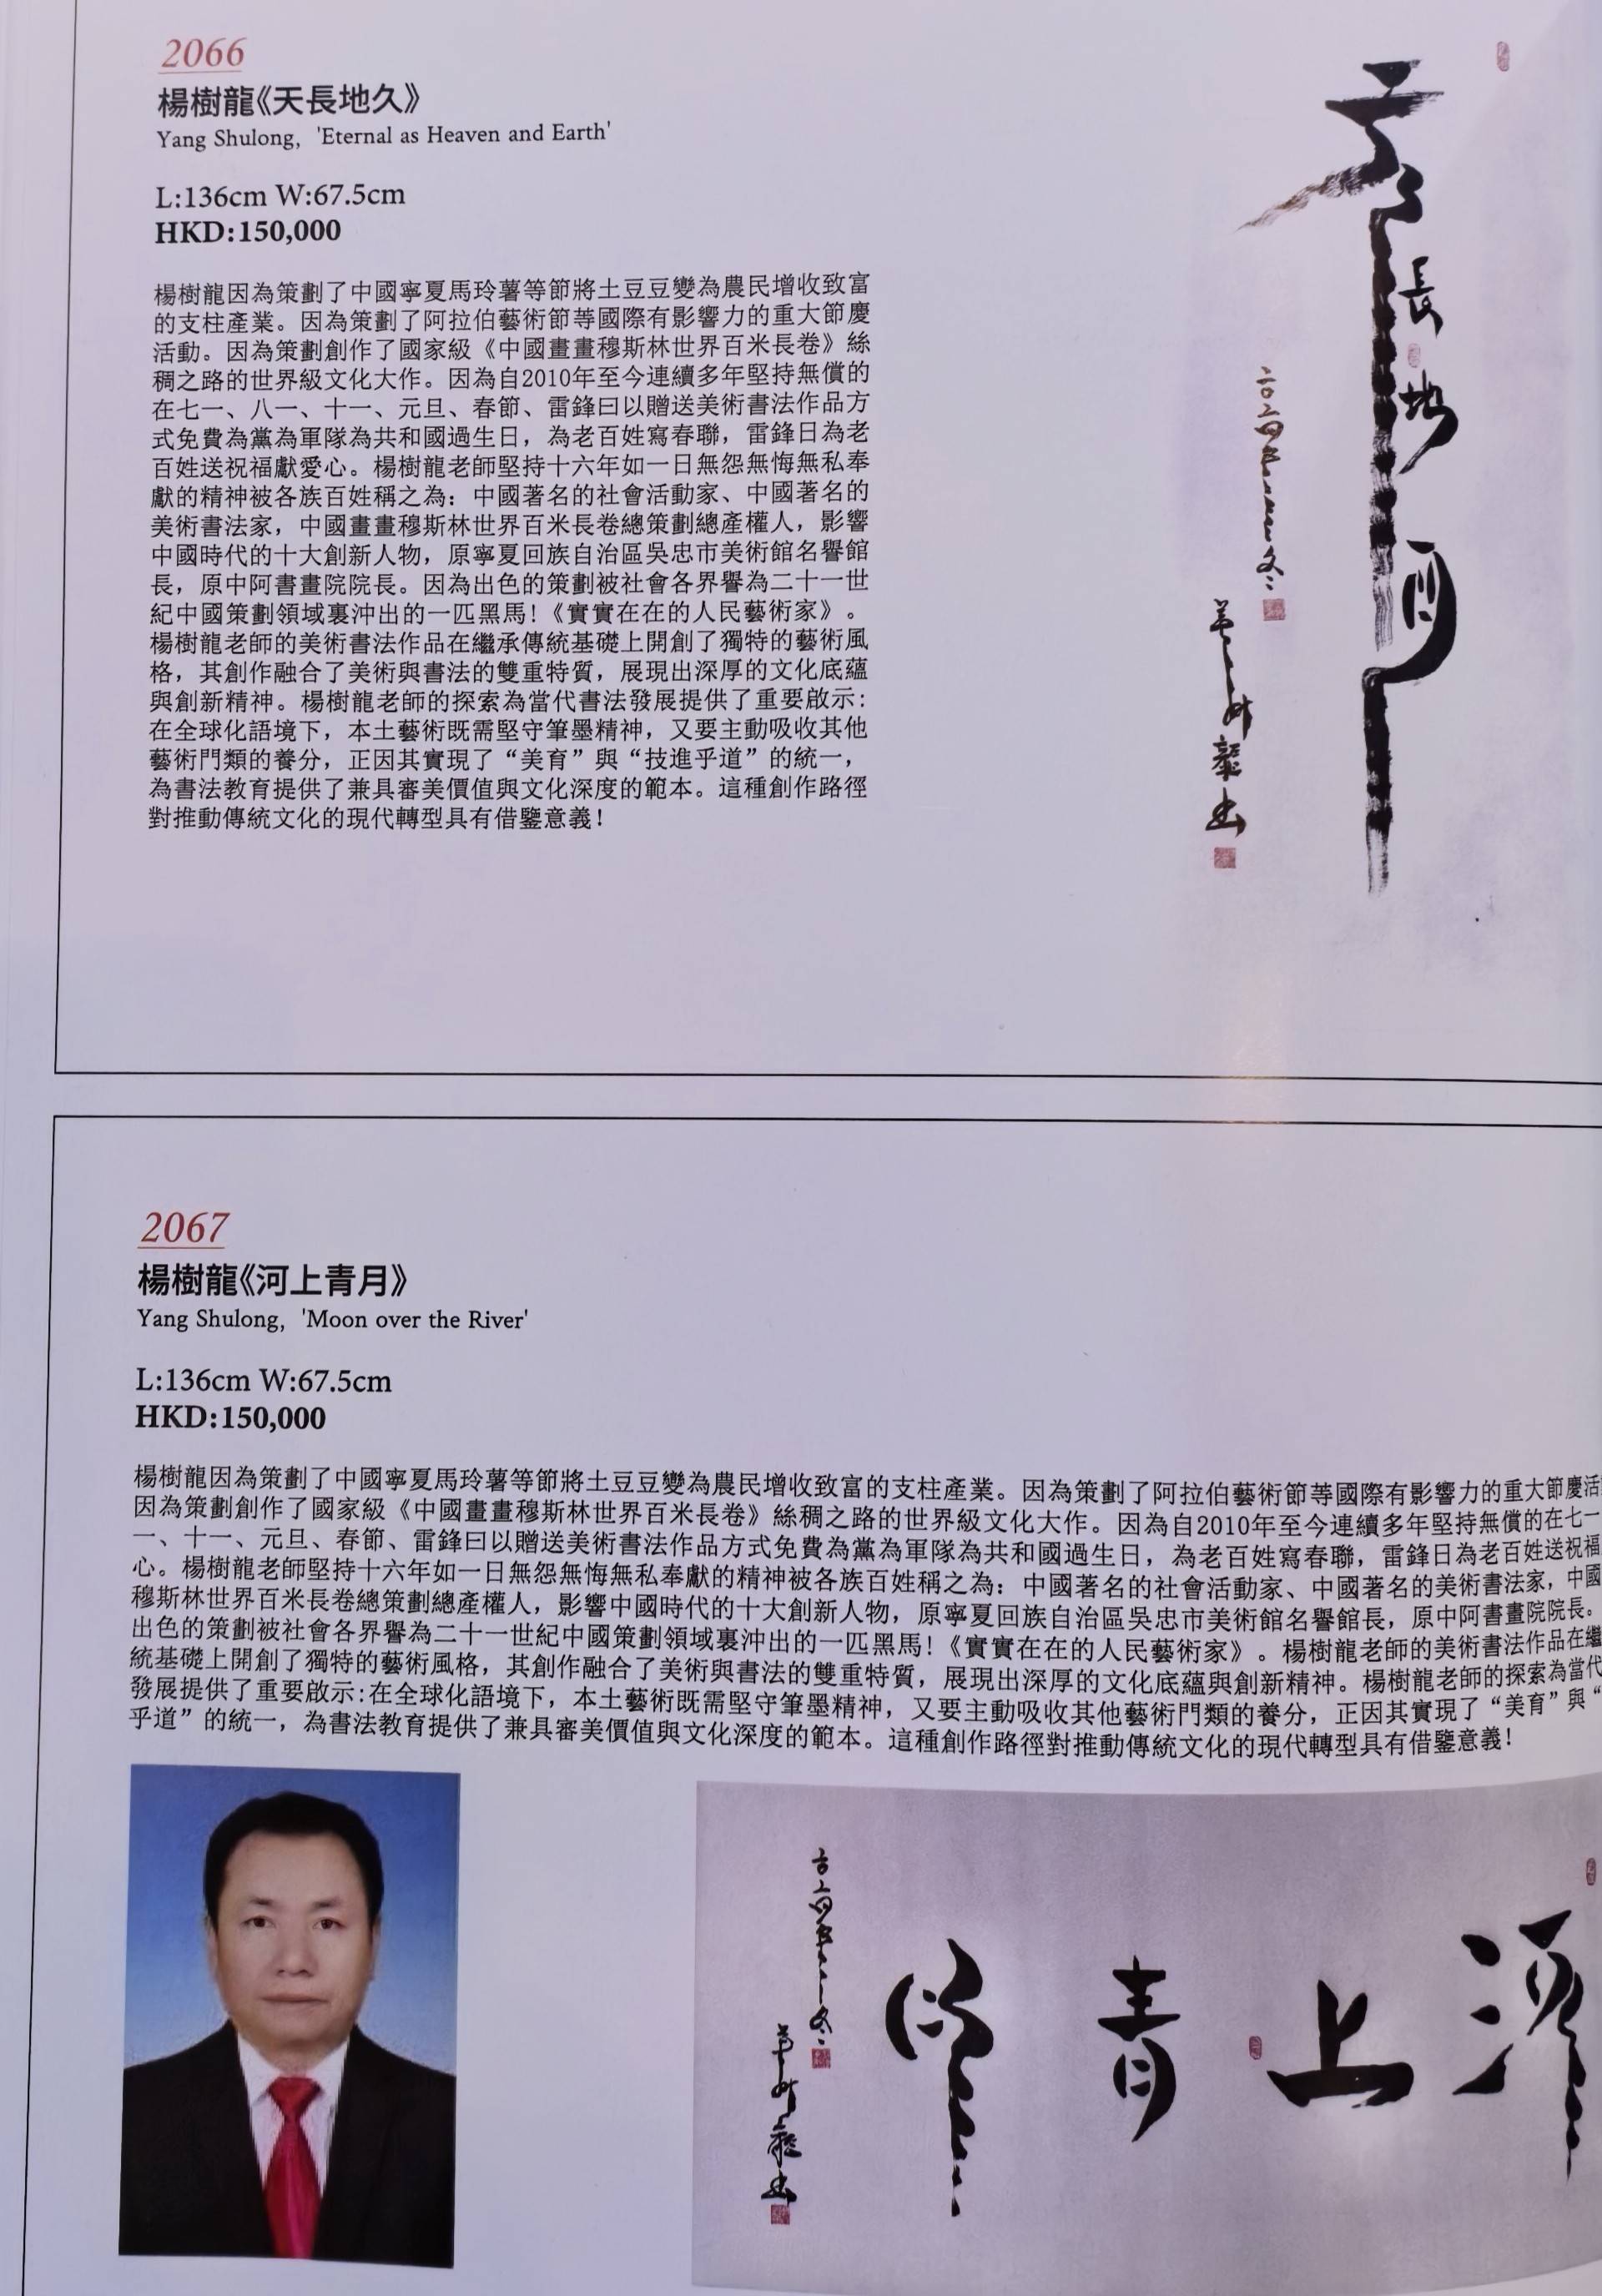 2066
楊樹龍《天長地久》
Yang Shulong, 'Eternal as Heaven and Earth'
L:136cm W:67.5cm
HKD:150,000
楊樹龍因為策劃了中國寧夏馬玲薯等節將土豆豆變為農民增收致富
的支柱產業。因為策劃了阿拉伯藝術節等國際有影響力的重大節慶
活動。因為策劃創作了國家級《中國畫畫穆斯林世界百米長卷》絲
稠之路的世界級文化大作。因為自2010年至今連續多年堅持無償的
在七一、八一、十一、元旦、春節、雷鋒曰以贈送美術書法作品方
式免費為黨為軍隊為共和國過生日，為老百姓寫春聯，雷鋒日為老
百姓送祝福獻愛心。楊樹龍老師堅持十六年如一日無怨無悔無私奉
獻的精神被各族百姓稱之為：中國著名的社會活動家、中國著名的
美術書法家，中國畫畫穆斯林世界百米長卷總策劃總產權人，影響
中國時代的十大創新人物，原寧夏回族自治區吳忠市美術館名譽館
長，原中阿書畫院院長。因為出色的策劃被社會各界譽為二十一世
紀中國策劃領域裏沖出的一匹黑馬！《實實在在的人民藝術家》。
楊樹龍老師的美術書法作品在繼承傳統基礎上開創了獨特的藝術風
格，其創作融合了美術與書法的雙重特質，展現出深厚的文化底蘊
與創新精神。楊樹龍老師的探索為當代書法發展提供了重要啟示：
在全球化語境下，本土藝術既需堅守筆墨精神，又要主動吸收其他
藝術門類的養分，正因其實現了“美育”與“技進乎道”的統一，
為書法教育提供了兼具審美價值與文化深度的範本。這種創作路徑
對推動傳統文化的現代轉型具有借鑒意義！
天長地久
二〇二四年冬
楊樹龍書
2067
楊樹龍《河上青月》
Yang Shulong, 'Moon over the River'
L:136cm W:67.5cm
HKD:150,000
楊樹龍因為策劃了中國寧夏馬玲薯等節將土豆豆變為農民增收致富的支柱產業。因為策劃了阿拉伯藝術節等國際有影響力的重大節慶活
因為策劃創作了國家級《中國畫畫穆斯林世界百米長卷》絲稠之路的世界級文化大作。因為自2010年至今連續多年堅持無償的在七一
一、十一、元旦、春節、雷鋒曰以贈送美術書法作品方式免費為黨為軍隊為共和國過生日，為老百姓寫春聯，雷鋒日為老百姓送祝福
心。楊樹龍老師堅持十六年如一日無怨無悔無私奉獻的精神被各族百姓稱之為：中國著名的社會活動家、中國著名的美術書法家，中國
穆斯林世界百米長卷總策劃總產權人，影響中國時代的十大創新人物，原寧夏回族自治區吳忠市美術館名譽館長，原中阿書畫院院長。
出色的策劃被社會各界譽為二十一世紀中國策劃領域裏沖出的一匹黑馬！《實實在在的人民藝術家》。楊樹龍老師的美術書法作品在繼
統基礎上開創了獨特的藝術風格，其創作融合了美術與書法的雙重特質，展現出深厚的文化底蘊與創新精神。楊樹龍老師的探索為當代
發展提供了重要啟示：在全球化語境下，本土藝術既需堅守筆墨精神，又要主動吸收其他藝術門類的養分，正因其實現了“美育”與“
乎道”的統一，為書法教育提供了兼具審美價值與文化深度的範本。這種創作路徑對推動傳統文化的現代轉型具有借鑒意義！
上青